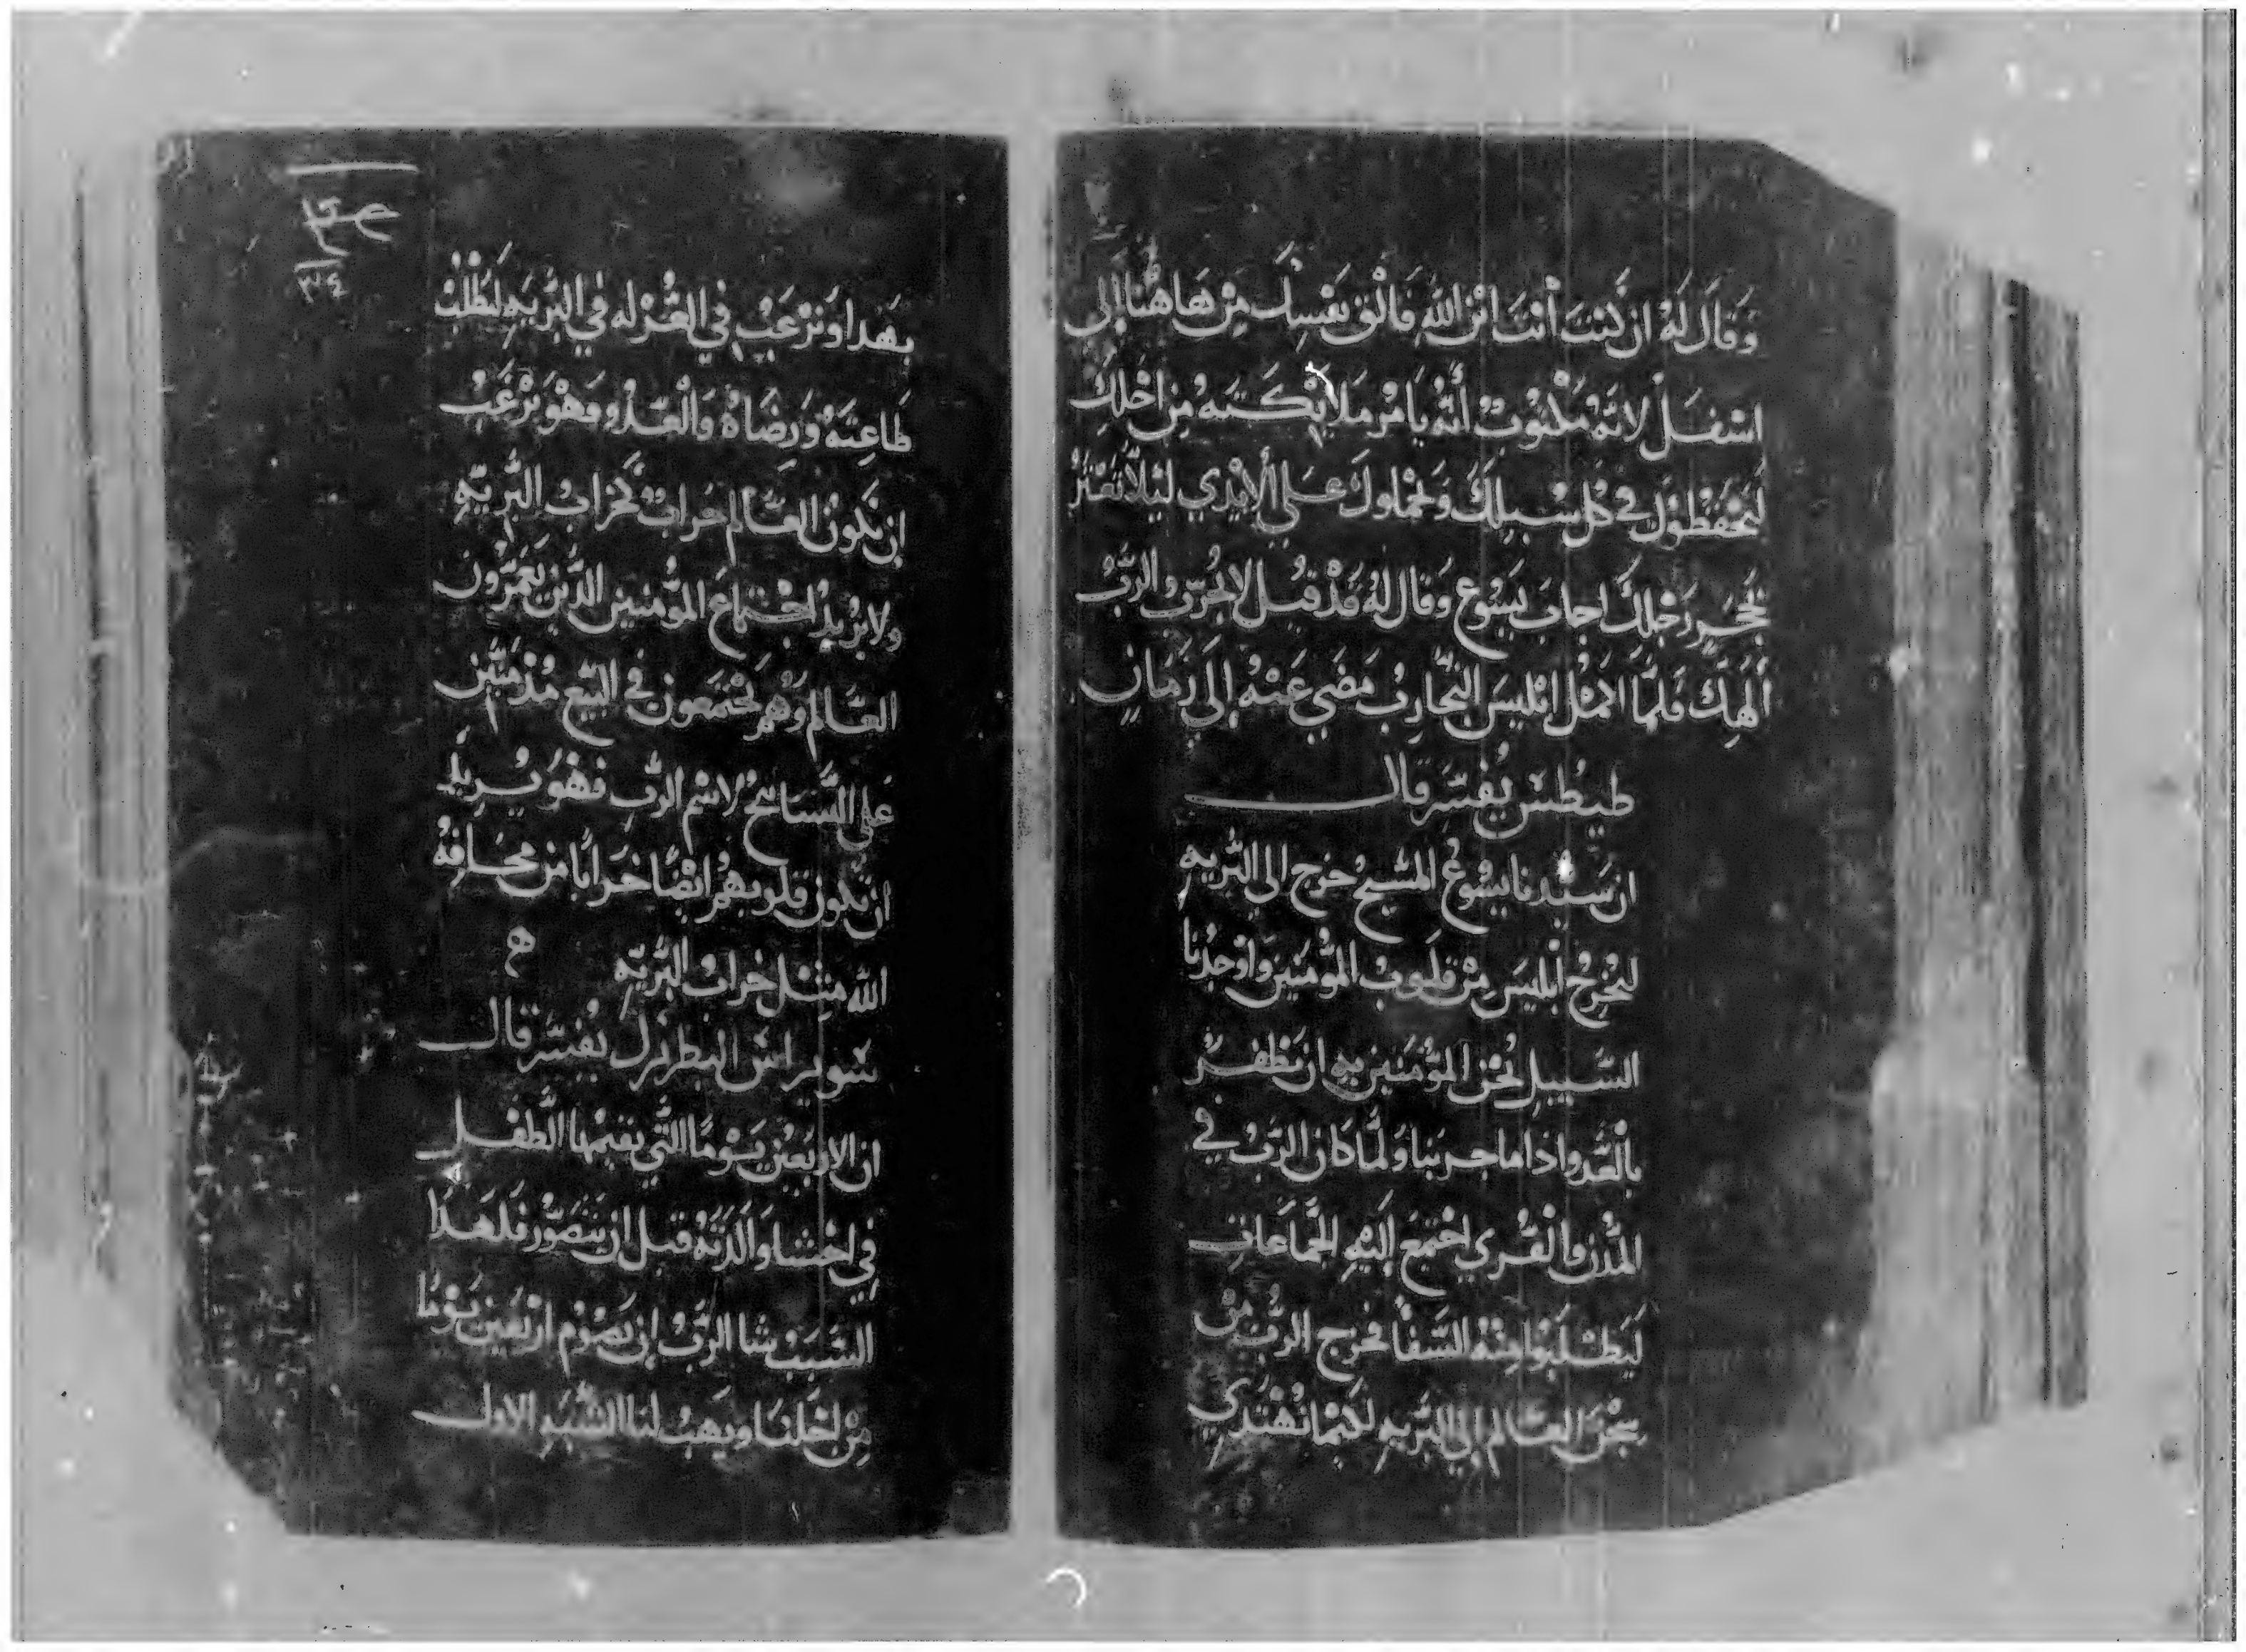 وَقَالَ لَهُ ان كُنْتَ أنْتَ ابْنَ اللّهِ فَالْقِ نَفْسَكَ مِنْ هَاهُنا إلى
اسْفَلْ لانَهُ مَكْتوُبٌ أنَّهُ يَامُر مَلايكَتَهُ مِن اجْلِكَ
لَيَحْفَظوُكَ في كُل سُبلِكَ وَيَحْمِلوكَ عَلى الأيْدي ليَلاّ تَعْثرْ
بحَجَرٍ رَجْلِكَ اجابَ يَسُوع وَقال لَهُ قدْ قيلَ لا تُجرّب الرّبُ
الَهِكَ فلمّا اكمْل ابْليسَ التجَارِبُ مَضَي عَنْهُ إلَى زَمَانٍ
طيطُس يُفسّر قال
ان سَيّدنا يَسُوعُ المَسّيح خرَج الي البّريه
ليُخْرِجُ أبْليسَ مْن قلوبُ المُؤمنين وَاوْجدنا
السّبيل نحُن المؤمَنين به ان نَظفرْ
بالعَدو اذا ما جربنا وَلمّا كان الرّبْ في
المُدن والقُري اجْتمَع إليَهِ الجَماعَات
ليَطلبَوا منهُ الشَفا فخرج الربُّ مِن
سجْن العَالم الي البّريه لكيْما نهْتدي
بهَدا وَنرْغَبْ في العُزْله في البّريَه لنَطْلبْ
طاعِتهُ وَرضَاهُ وَالعَدوُ وَهوَ يَرْغَبُ
ان يَكونُ العَالم خرابٌ كخرَابُ البّريّه
ولا يرُيدُ اجْتماعَ المؤُمنين الذَين يَعمّرُون
العَالم وَهُم يجْتمَعون في البيَع مُدْمنين
عَلى التَسّابيحُ لاسْم الرّب فهُوَ يُريد
ان يكون قلوبهُم ايْضًا خرَابًا من مخَافةُ
الله مثِل خرابُ البّريّه
سَويراس البطريرك يُفسّر قال
ان الاربَعيْن يَوْمًا التّي يقيمْها الطفل
في احْشا وَالدَتهُ قبل ان يتصَوّر فلهَذَا
السَبَبْ شا الرَّبُ ان يَصُوم ارْبَعين يَوْمًا
مِنْ اجْلنَا ويَهَبُ لنا الشَبَه الاول